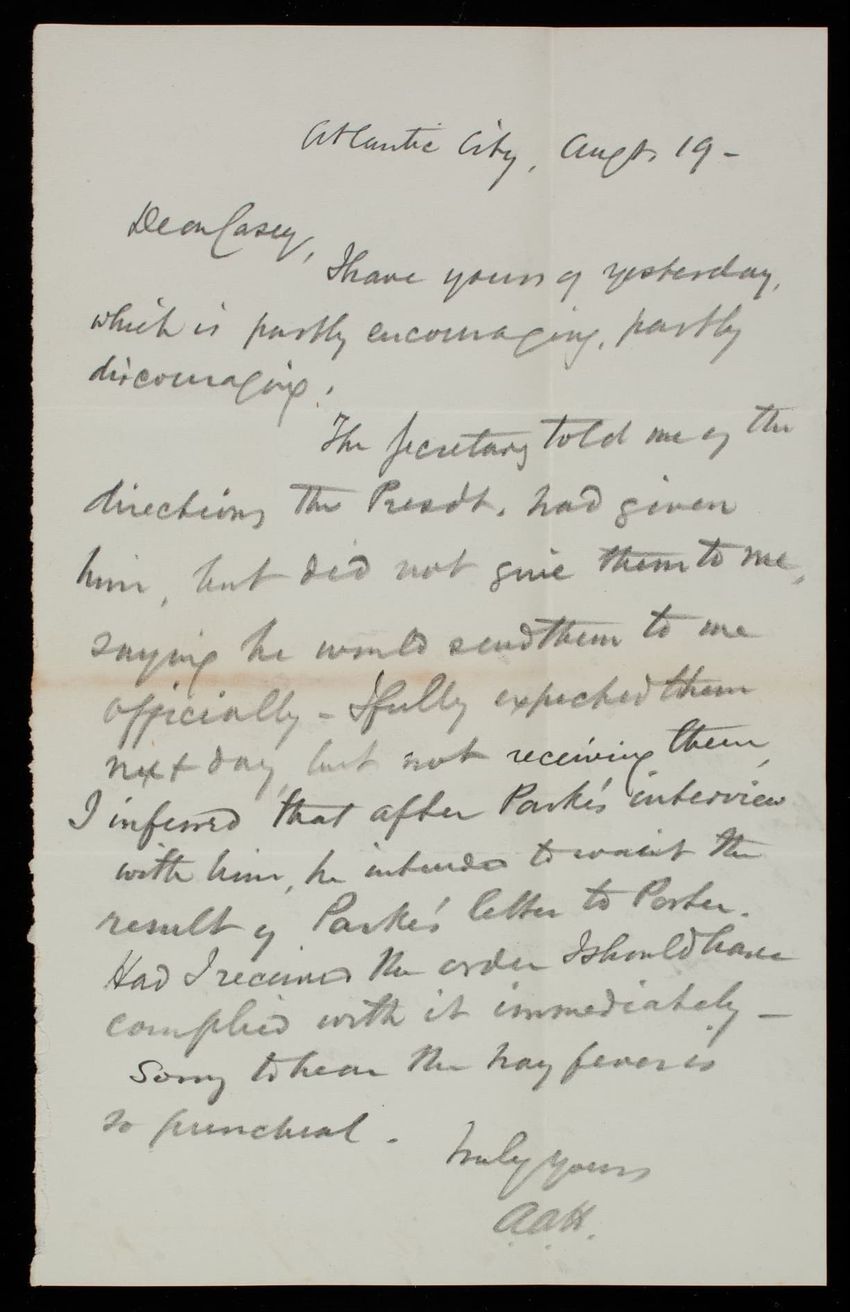 Atlantic City, Augt. 19 -
Dear Casey,
I have yours of yesterday,
which is partly encouraging, partly
discouraging.
The Secretary told me of the
directions the Presdt. had given
him, but did not give them to me,
saying he would send them to me
officially - I fully expected them
next day, but not receiving them,
I inferred that after Parke's interview
with him, he intended to await the
result of Parke's letter to Porter.
Had I received the order I should have
complied with it immediately -
Sorry to hear the hay fever is
so punctual.
Truly yours
A.A.H.